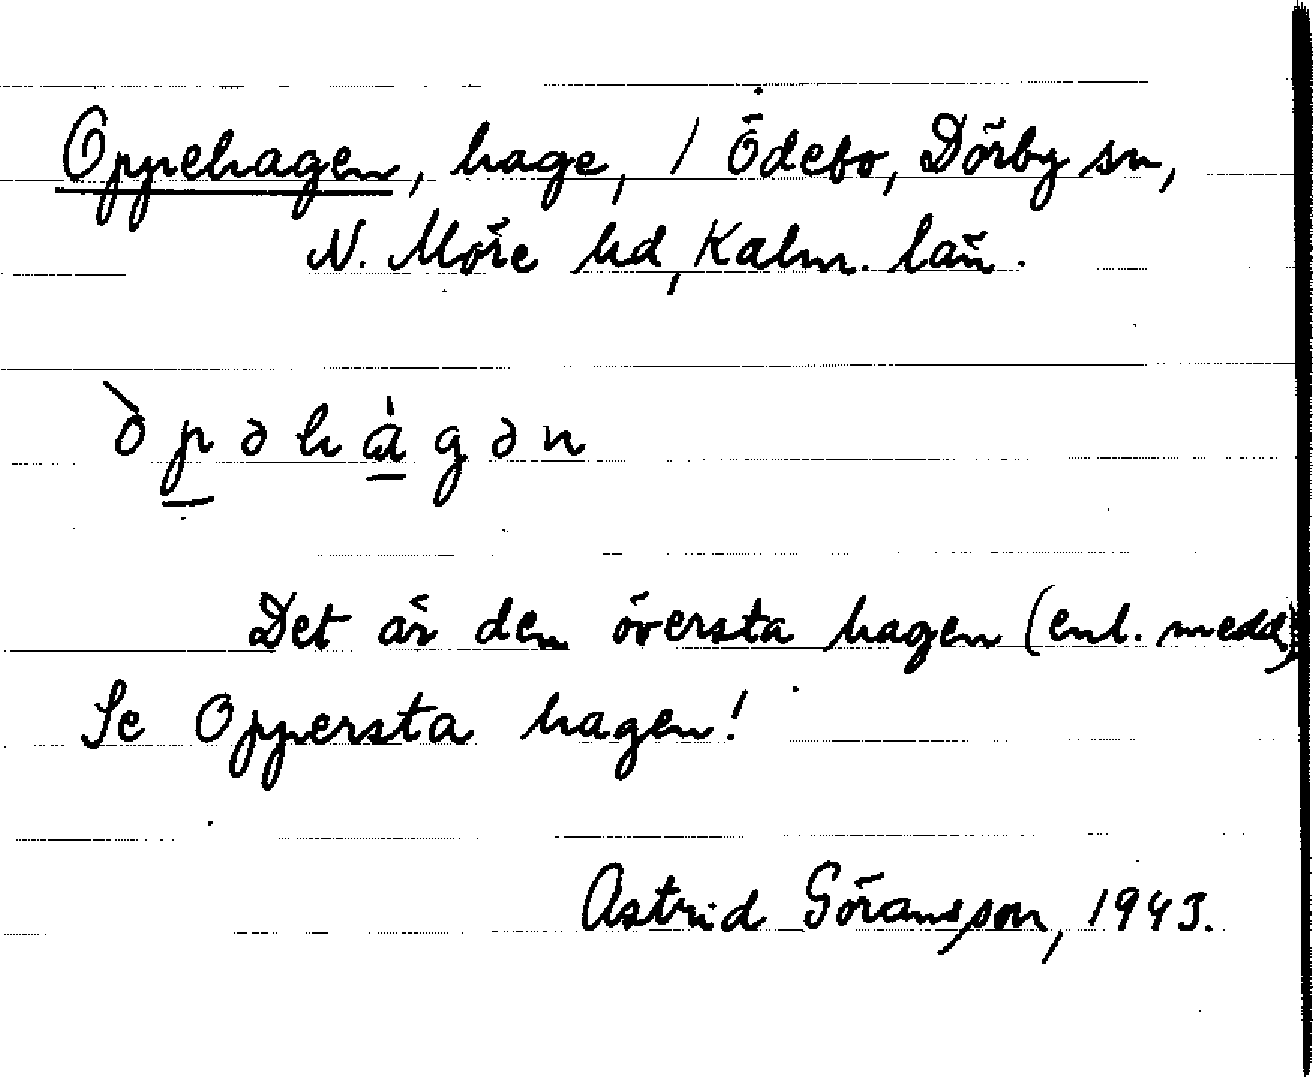 Oppehagen, hage, / Ödebo, Dörby sn,
N. Möre hd, Kalm. län.
òpəhágən
Det är den översta hagen (enl. medd)
Se Oppersta hagen!
Astrid Göransson, 1943.